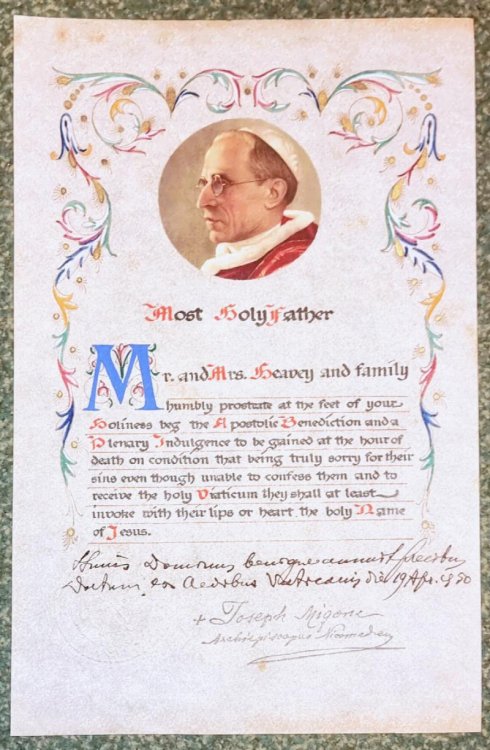 Most Holy Father
Mr. and Mrs. Heavey and family
humbly prostrate at the feet of your
Holiness beg the Apostolic Benediction and a
Plenary Indulgence to be gained at the hour of
death on condition that being truly sorry for their
sins even though unable to confess them and to
receive the holy Viaticum they shall at least
invoke with their lips or heart the holy Name
of Jesus.
benigne annuit precibus
Datum ex Aedibus Vaticanis die 19 Apr. 1950
+ Joseph Migone
Archiepiscopus Nicomedien